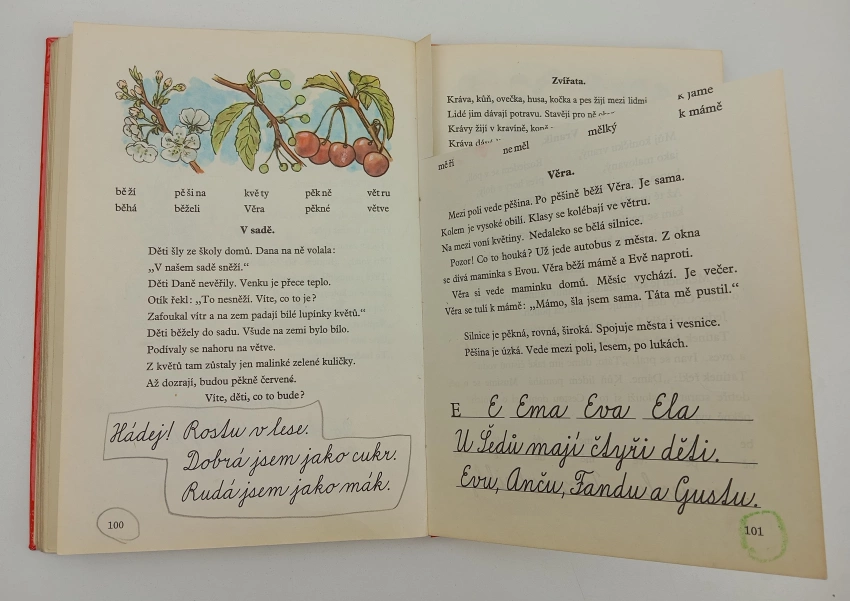 běží pěšina květy pěkně větru
běhá běželi Věra pěkné větve
V sadě.
Děti šly ze školy domů. Dana na ně volala:
„V našem sadě sněží.“
Děti Daně nevěřily. Venku je přece teplo.
Otík řekl: „To nesněží. Víte, co to je?
Zafoukal vítr a na zem padají bílé lupínky květů.“
Děti běžely do sadu. Všude na zemi bylo bílo.
Podívaly se nahoru na větve.
Z květů tam zůstaly jen malinké zelené kuličky.
Až dozrají, budou pěkně červené.
Víte, děti, co to bude?
Hádej! Rostu v lese.
Dobrá jsem jako cukr.
Rudá jsem jako mák.
100
Zvířata.
Kráva, kůň, ovečka, husa, kočka a pes žijí mezi lidmi
Lidé jim dávají potravu. Stavějí pro ně
Krávy žijí v kravíně,
Kráva
k jame
měří neměl mělký k mámě
Věra.
Mezi poli vede pěšina. Po pěšině běží Věra. Je sama.
Kolem je vysoké obilí. Klasy se kolébají ve větru.
Na mezi voní květiny. Nedaleko se bělá silnice.
Pozor! Co to houká? Už jede autobus z města. Z okna
se dívá maminka s Evou. Věra běží mámě a Evě naproti.
Věra si vede maminku domů. Měsíc vychází. Je večer.
Věra se tulí k mámě: „Mámo, šla jsem sama. Táta mě pustil.“
Silnice je pěkná, rovná, široká. Spojuje města i vesnice.
Pěšina je úzká. Vede mezi poli, lesem, po lukách.
E E Ema Eva Ela
U Šedů mají čtyři děti.
Evu, Anču, Fandu a Gustu.
101